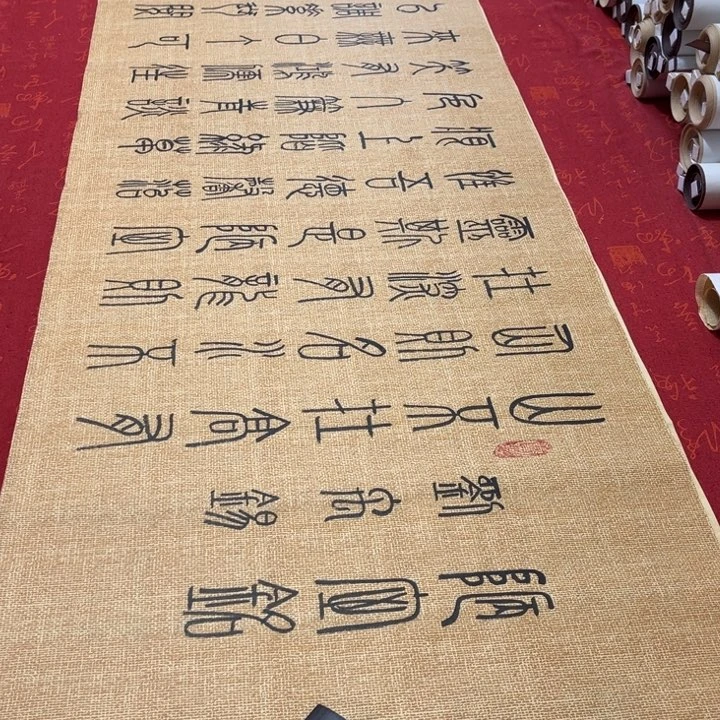 陋室銘
劉禹錫
山不在高有
仙則名水不
在深有龍則
靈斯是陋室
惟吾德馨苔
痕上階綠草
色入簾青談
笑有鴻儒往
來無白丁可
以調素琴閱